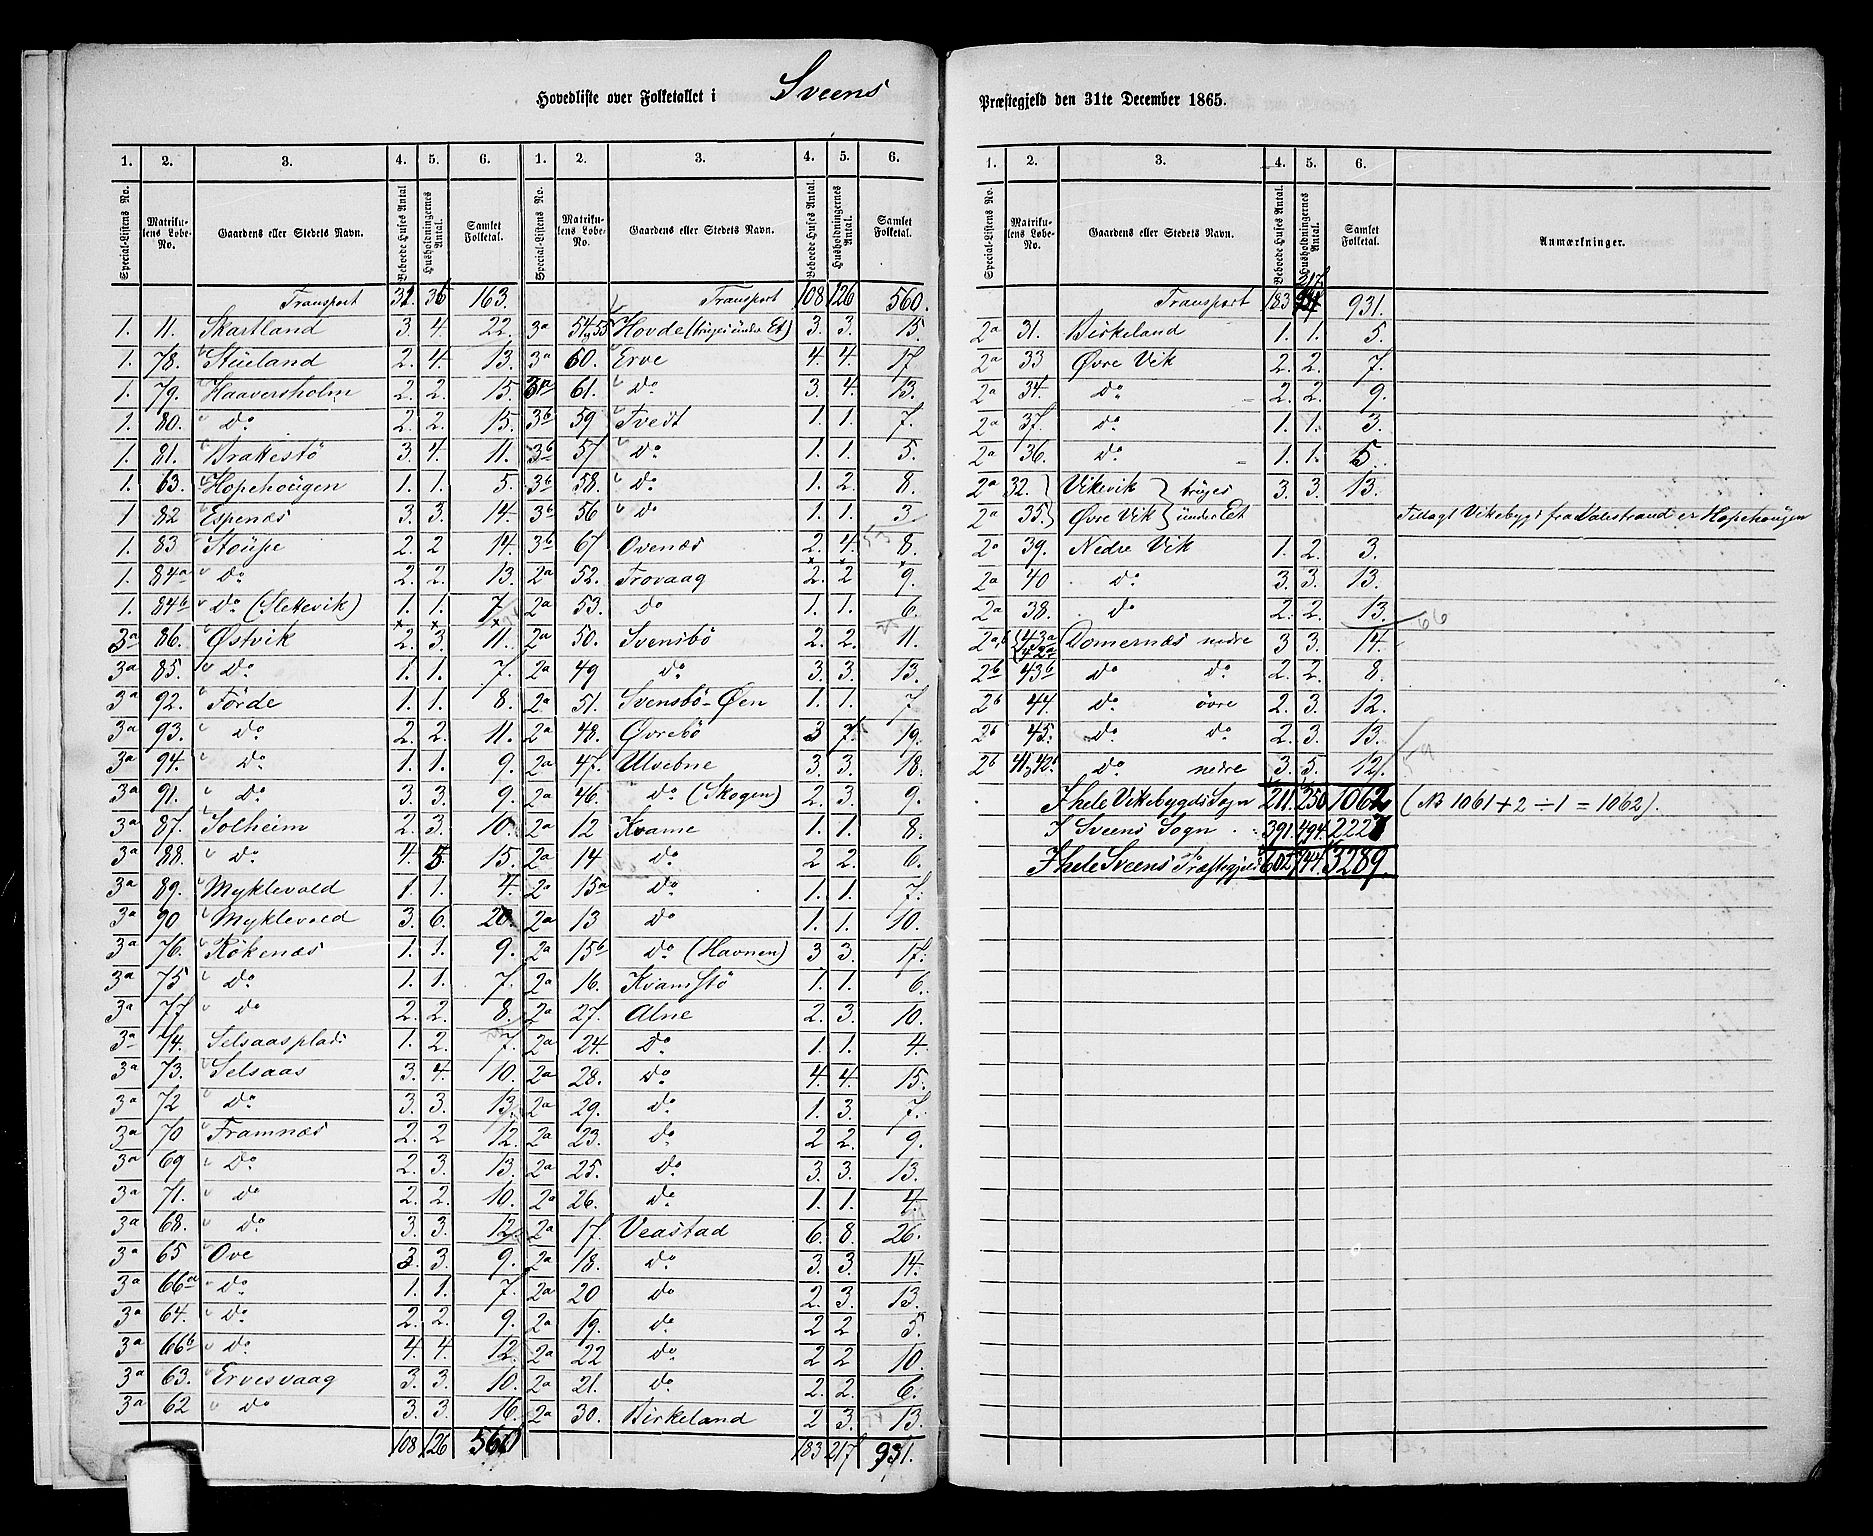 Hovedliste over Folketallet i Sveens Præstegjeld den 31te December 1865.
1. 2. 3. 4. 5. 6. 1. 2. 3. 4. 5. 6.
Special-Listens No. Matrikulens Løbe-No. Gaardens eller Stedets Navn. Beboede Huses Antal Husholdningernes Antal. Samlet Folketal. Special-Listens No. Matrikulens Løbe-No. Gaardens eller Stedets Navn. Beboede Huses Antal. Husholdningernes Antal. Samlet Folketal.
Transport 163.
1. 11. Skartland 3. 4. 22.
1. 78. Stueland 2. 4. 13.
1. 79. Haaversholm 2. 2. 15.
1. 80. Do 2. 2. 15.
1. 81. Brattestö 3. 4. 11.
1. 63. Hopehougen 1. 1. 5.
1 82 Espenæs 3. 3. 14.
1. 83 Stoupe 2. 2 14.
1. 84a Do 2. 2. 13.
1. 84b Do (Slettevik) 1. 1. 7.
3a 86. Østvik 2. 3. 11.
3a 85. Do 1. 1. 7.
3a 92. Förde 1. 1. 8.
3a 93. Do 2. 2. 11.
3a 94. Do 1. 1. 9.
3a 91. Do 3. 3. 9.
3a 87. Solheim 2. 3. 10.
3a 88. Do 4. 5. 15.
3a 89. Myklevold 1. 1. 4.
3a 90 Myklevold 3. 6. 20.
3a 76. Rökenæs 1. 1. 9.
3a 75 Do 1. 1. 7.
3a 77 Do 2. 2. 8.
3a 74. Selsaasplads 1. 2. 7.
3a 73. Selsaas 3. 4. 10.
3a 72 Do 3. 3. 13.
3a 70 Framnæs 2. 2 12.
3a 69 Do 2. 3. 13.
3a 71. Do 2. 2. 10.
3a 68. Do 3. 3. 12.
3a 65 Ove 3. 3. 9.
3a 66a Do 1. 1. 7.
3a 64. Do 2. 2. 9.
3a 66b Do 4. 4. 12.
3a 63. Ervesvaag 3. 3. 10.
3a 62 Do 3. 3. 16.
108 126 560
Transport 108 126 560.
3a 54, 55 Hovde (bruges under Et) 3. 3. 15.
3a 60. Erve 4. 4. 17
61. Do 3. 4. 13.
3b 59 Tvedt 1. 1. 7.
3b 57 Do 1. 1. 5.
3b 58. Do 1. 2. 8.
3b 56 Do 1. 1. 3.
3b 67 Ovenæs 2. 4. 8.
2a 52. Trovaag 2. 2 9.
2a 53. Do 1. 1. 6.
2a 50. Svensbö 2. 2. 11.
2a 49 Do 3. 3. 13.
2a 51. Svensbö-Øen 1. 1. 7
2a 48. Øvrebö 3 7. 19.
2a 47. Ulvebne 3. 3. 18.
2a 46. Do (Skogen) 2. 3. 9.
2a 12 Kvame 1. 1. 8.
2a 14 Do 2 2. 6.
2a 15a Do 1. 1. 7.
2a 13 Do 1. 1. 10.
2a 15b Do (Havnen) 3 3. 17.
2a 16. Kvamstö 1. 1. 6.
2a 27. Alne 2. 3. 10.
2a 24. Do 1. 1. 4.
2a 28. Do 4. 4. 15.
2a 29. Do 1. 3. 7.
2a 23. Do 2 2. 9.
2a 25. Do 3. 3. 13.
2a 26. Do 1. 1. 4.
2a 17. Veastad 6. 8. 26.
2a 18. Do 3. 3. 14.
2a 20 Do 2. 3. 13.
2a 19. Do 2 2 5.
2a 22 Do 2 2 10.
2a 21. Do 2. 2. 6.
2a 30. Birkeland 2 3. 13.
183 217 931.
1. 2. 3. 4. 5. 6.
Special-Listens No. Matrikulens Løbe-No. Gaardens eller Stedets Navn. Beboede Huses Antal. Husholdningernes Antal. Samlet Folketal. Anmærkninger.
217
Transport 183 931.
2a 31. Birkeland 1. 1. 5.
2a 33 Øvre Vik 2. 2. 7.
2a 34. Do 2. 2. 9.
2a 37. Do 1. 1 3.
2a 36. Do 1. 1. 5.
2a 32. Vikevik } bruges 3. 3. 13.
2a 35. Øvre Vik } under Et Tillagt Vikebygd fra Valestrand er Hopehougen
2a 39. Nedre Vik 1. 2. 3.
2a 40 do 3. 3. 13.
2a 38. do 2. 2. 13. 66
43a 42a Domernæs nedre 3 3. 14.
2b 43b Do Do 2. 2. 8.
2b 44. Do övre 2. 3. 12.
2b 45. Do Do 2. 3. 13.
2b 41, 42b Do nedre 3. 5. 12.
I hele Vikebygds Sogn 211. 250 1062 (NB 1061 + 2 ÷ 1 = 1062).
I Sveens Sogn 391. 494. 2227
I hele Sveens Præstegjeld 602 744. 3289.